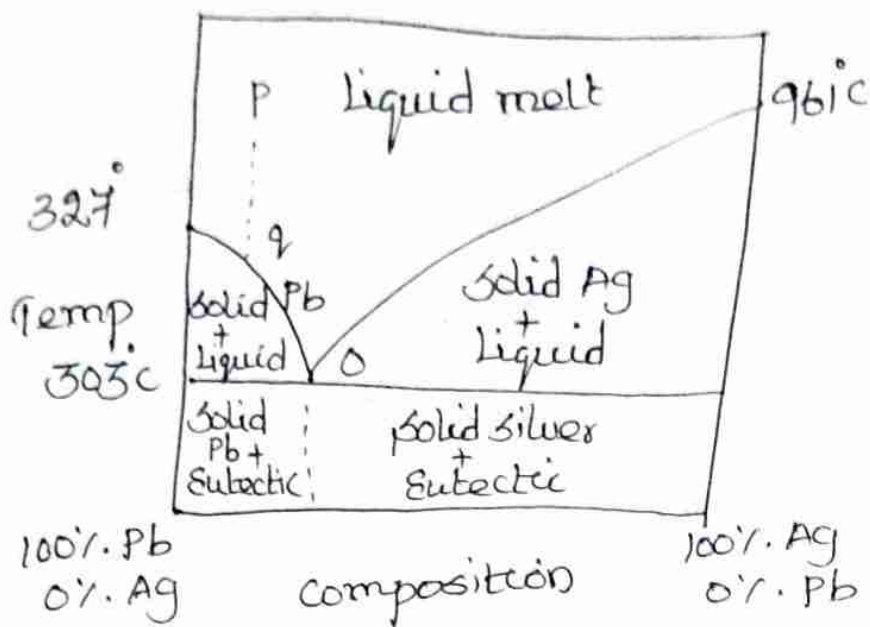 P Liquid melt
961°C
327°
q
Solid Pb
+
Liquid
Solid Ag
+
Liquid
Temp
303°C
O
Solid
Pb +
Eutectic
Solid silver
+
Eutectic
100%. Pb
0%. Ag
composition
100%. Ag
0%. Pb